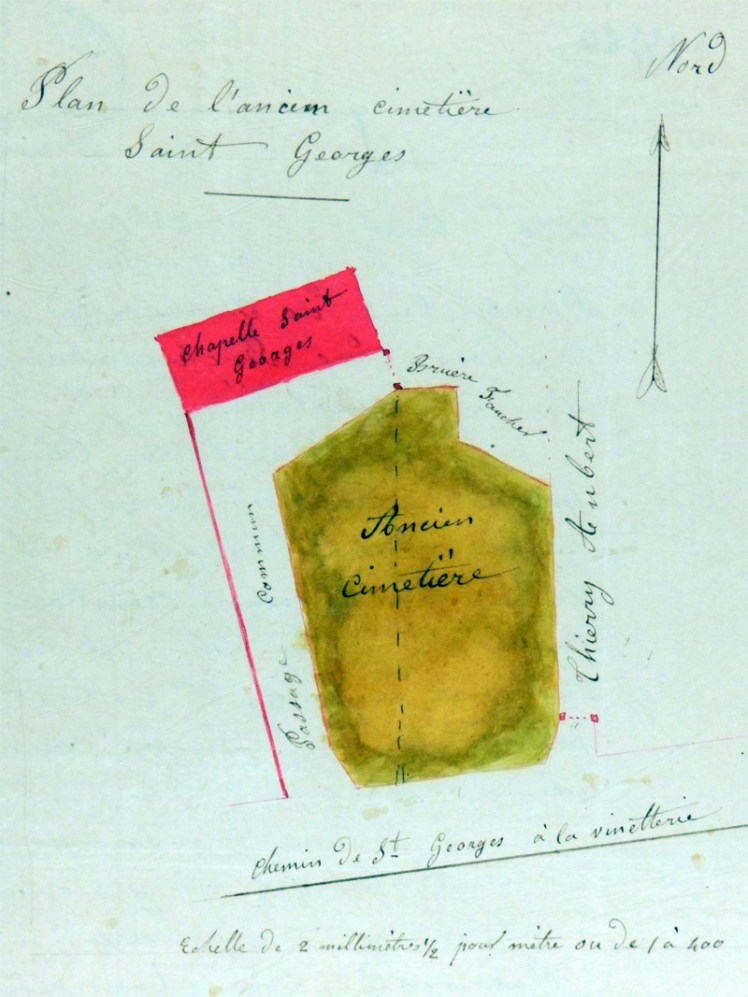 Nord
Plan de l'ancien cimetïère
Saint Georges
Chapelle Saint
Georges
Bruère Faucher
Ancien
Cimetïère
Thierry Aubert
Passage Commun
Chemin de St Georges à la vinetterie
Echelle de 2 millimètres 1/2 pour mètre ou de 1 à 400